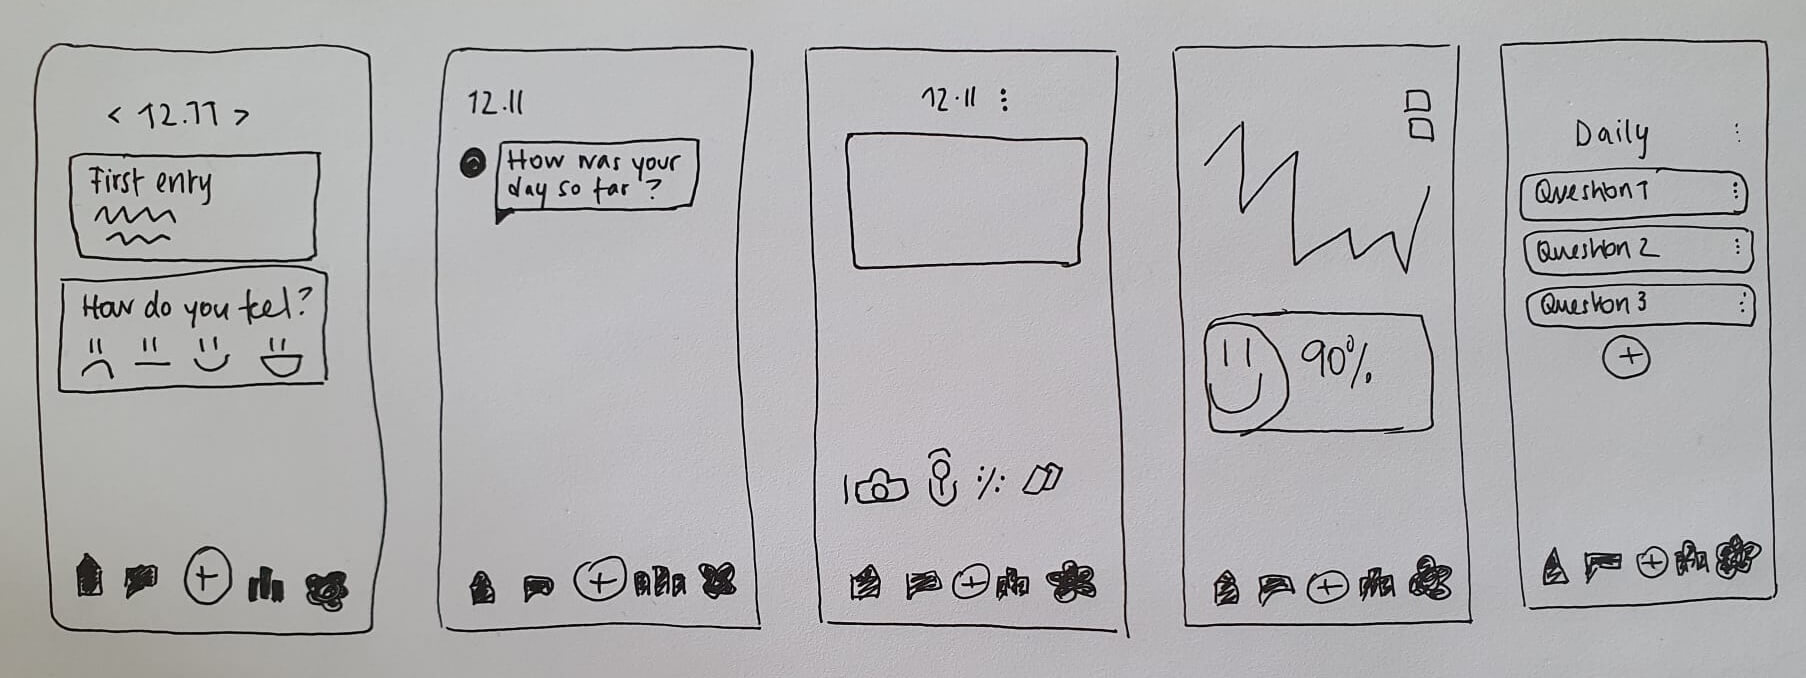 < 12.11 >
First entry
How do you feel?
12.11
How was your
day so far?
12.11
90%
Daily
Question 1
Question 2
Question 3